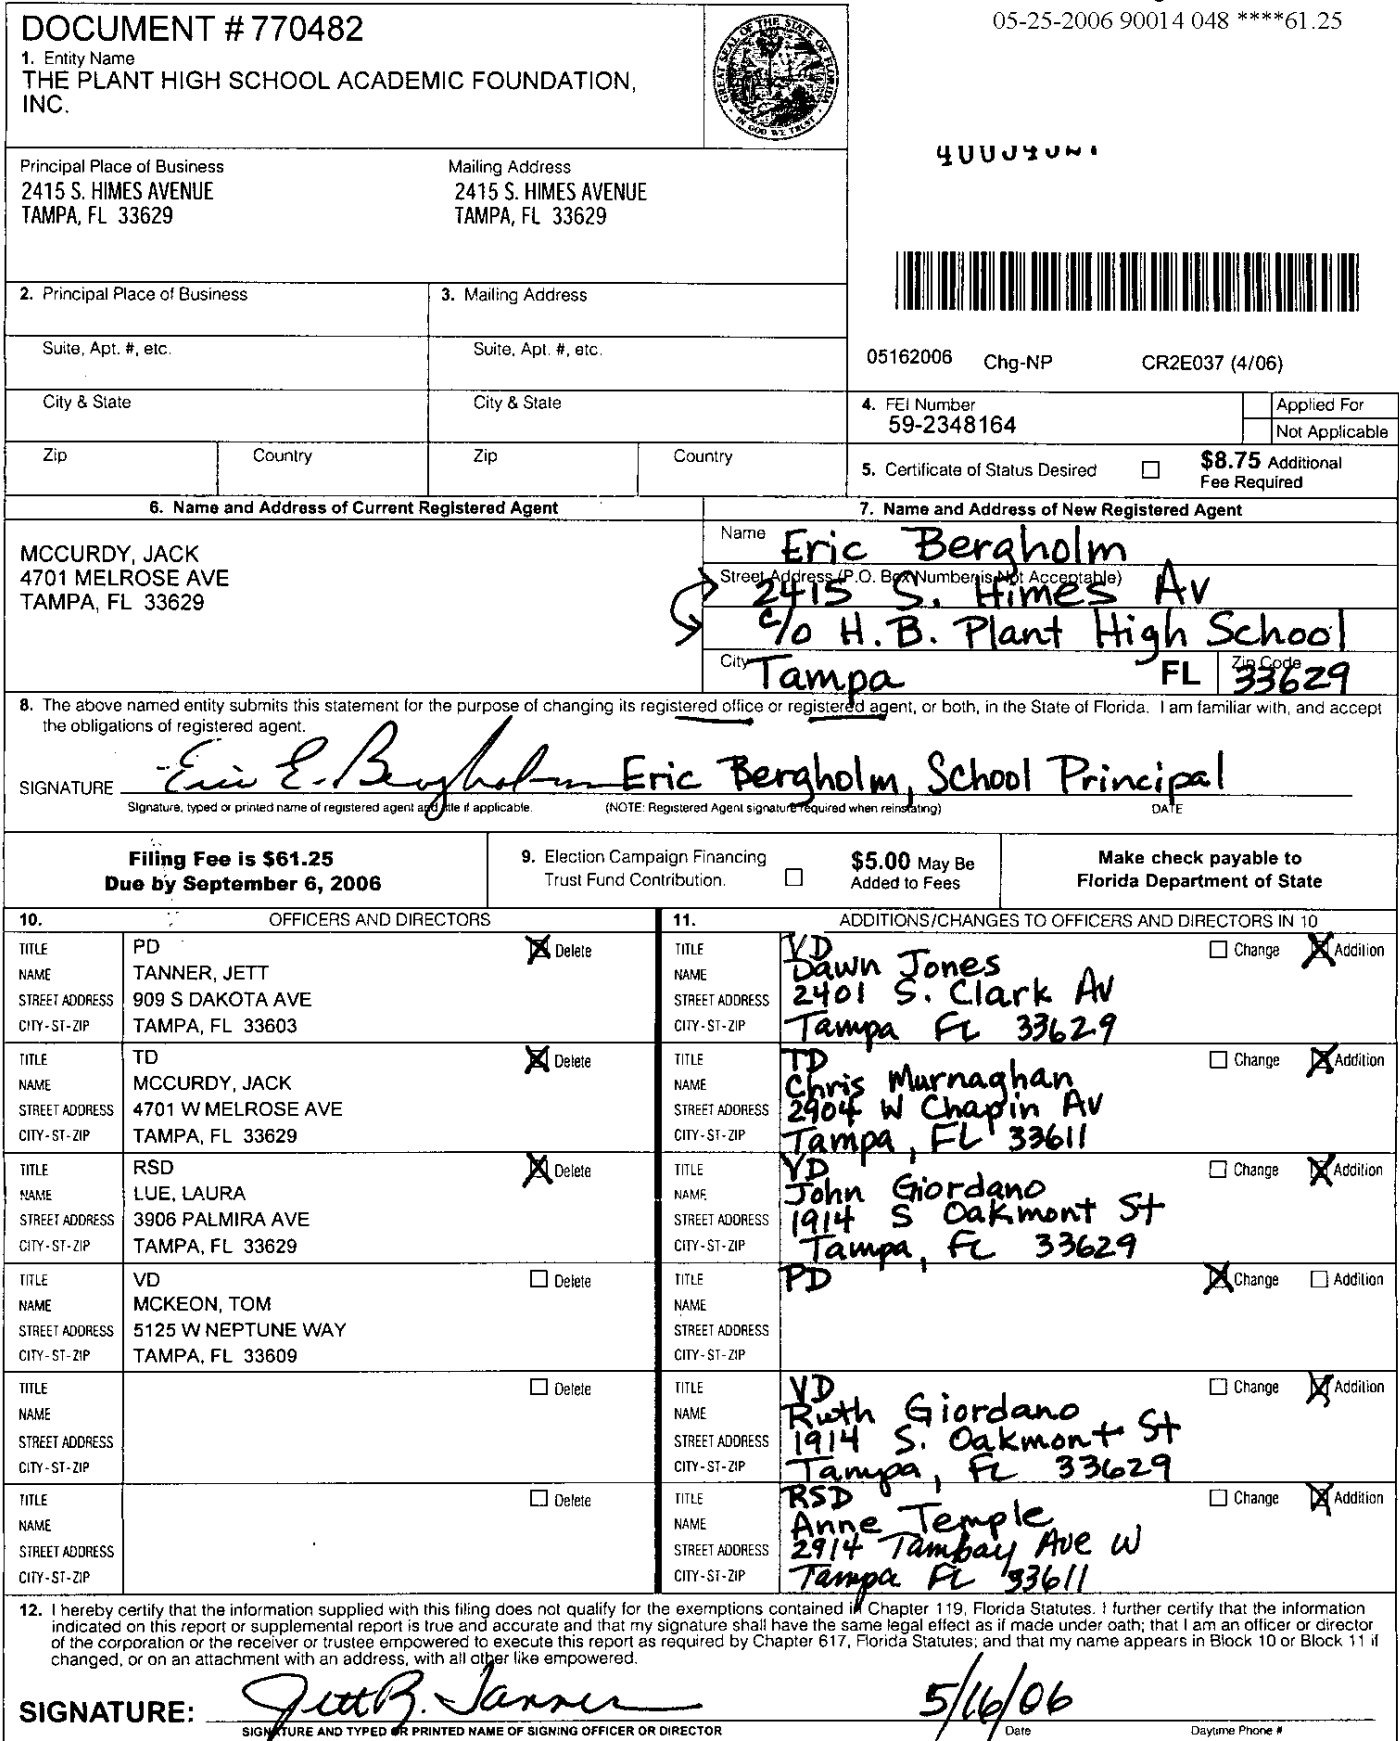 05-25-2006 90014 048 ****61.25
DOCUMENT # 770482
1. Entity Name
THE PLANT HIGH SCHOOL ACADEMIC FOUNDATION,
INC.
GREAT SEAL OF THE STATE OF FLORIDA
IN GOD WE TRUST
Principal Place of Business
2415 S. HIMES AVENUE
TAMPA, FL 33629
Mailing Address
2415 S. HIMES AVENUE
TAMPA, FL 33629
2. Principal Place of Business
3. Mailing Address
Suite, Apt. #, etc.
Suite, Apt. #, etc.
City & State
City & State
Zip Country
Zip Country
05162006 Chg-NP CR2E037 (4/06)
4. FEI Number
59-2348164
Applied For
Not Applicable
5. Certificate of Status Desired
$8.75 Additional
Fee Required
6. Name and Address of Current Registered Agent
MCCURDY, JACK
4701 MELROSE AVE
TAMPA, FL 33629
7. Name and Address of New Registered Agent
Name Eric Bergholm
Street Address (P.O. Box Number is Not Acceptable)
2415 S. Himes Av
c/o H.B. Plant High School
City Tampa FL Zip Code 33629
8. The above named entity submits this statement for the purpose of changing its registered office or registered agent, or both, in the State of Florida. I am familiar with, and accept
the obligations of registered agent.
SIGNATURE Eric E. Bergholm Eric Bergholm, School Principal
Signature, typed or printed name of registered agent and title if applicable. (NOTE: Registered Agent signature required when reinstating) DATE
Filing Fee is $61.25
Due by September 6, 2006
9. Election Campaign Financing
Trust Fund Contribution.
$5.00 May Be
Added to Fees
Make check payable to
Florida Department of State
10. OFFICERS AND DIRECTORS
TITLE PD Delete
NAME TANNER, JETT
STREET ADDRESS 909 S DAKOTA AVE
CITY-ST-ZIP TAMPA, FL 33603
TITLE TD Delete
NAME MCCURDY, JACK
STREET ADDRESS 4701 W MELROSE AVE
CITY-ST-ZIP TAMPA, FL 33629
TITLE RSD Delete
NAME LUE, LAURA
STREET ADDRESS 3906 PALMIRA AVE
CITY-ST-ZIP TAMPA, FL 33629
TITLE VD Delete
NAME MCKEON, TOM
STREET ADDRESS 5125 W NEPTUNE WAY
CITY-ST-ZIP TAMPA, FL 33609
TITLE Delete
NAME
STREET ADDRESS
CITY-ST-ZIP
TITLE Delete
NAME
STREET ADDRESS
CITY-ST-ZIP
11. ADDITIONS/CHANGES TO OFFICERS AND DIRECTORS IN 10
TITLE VD Change Addition
NAME Dawn Jones
STREET ADDRESS 2401 S. Clark Av
CITY-ST-ZIP Tampa FL 33629
TITLE TD Change Addition
NAME Chris Murnaghan
STREET ADDRESS 2904 W Chapin Av
CITY-ST-ZIP Tampa, FL 33611
TITLE VD Change Addition
NAME John Giordano
STREET ADDRESS 1914 S Oakmont St
CITY-ST-ZIP Tampa, FL 33629
TITLE PD Change Addition
NAME
STREET ADDRESS
CITY-ST-ZIP
TITLE VD Change Addition
NAME Ruth Giordano
STREET ADDRESS 1914 S. Oakmont St
CITY-ST-ZIP Tampa, FL 33629
TITLE RSD Change Addition
NAME Anne Temple
STREET ADDRESS 2914 Tambay Ave W
CITY-ST-ZIP Tampa FL 33611
12. I hereby certify that the information supplied with this filing does not qualify for the exemptions contained in Chapter 119, Florida Statutes. I further certify that the information
indicated on this report or supplemental report is true and accurate and that my signature shall have the same legal effect as if made under oath; that I am an officer or director
of the corporation or the receiver or trustee empowered to execute this report as required by Chapter 617, Florida Statutes; and that my name appears in Block 10 or Block 11 if
changed, or on an attachment with an address, with all other like empowered.
SIGNATURE: Jett B. Tanner 5/16/06
SIGNATURE AND TYPED OR PRINTED NAME OF SIGNING OFFICER OR DIRECTOR Date Daytime Phone #